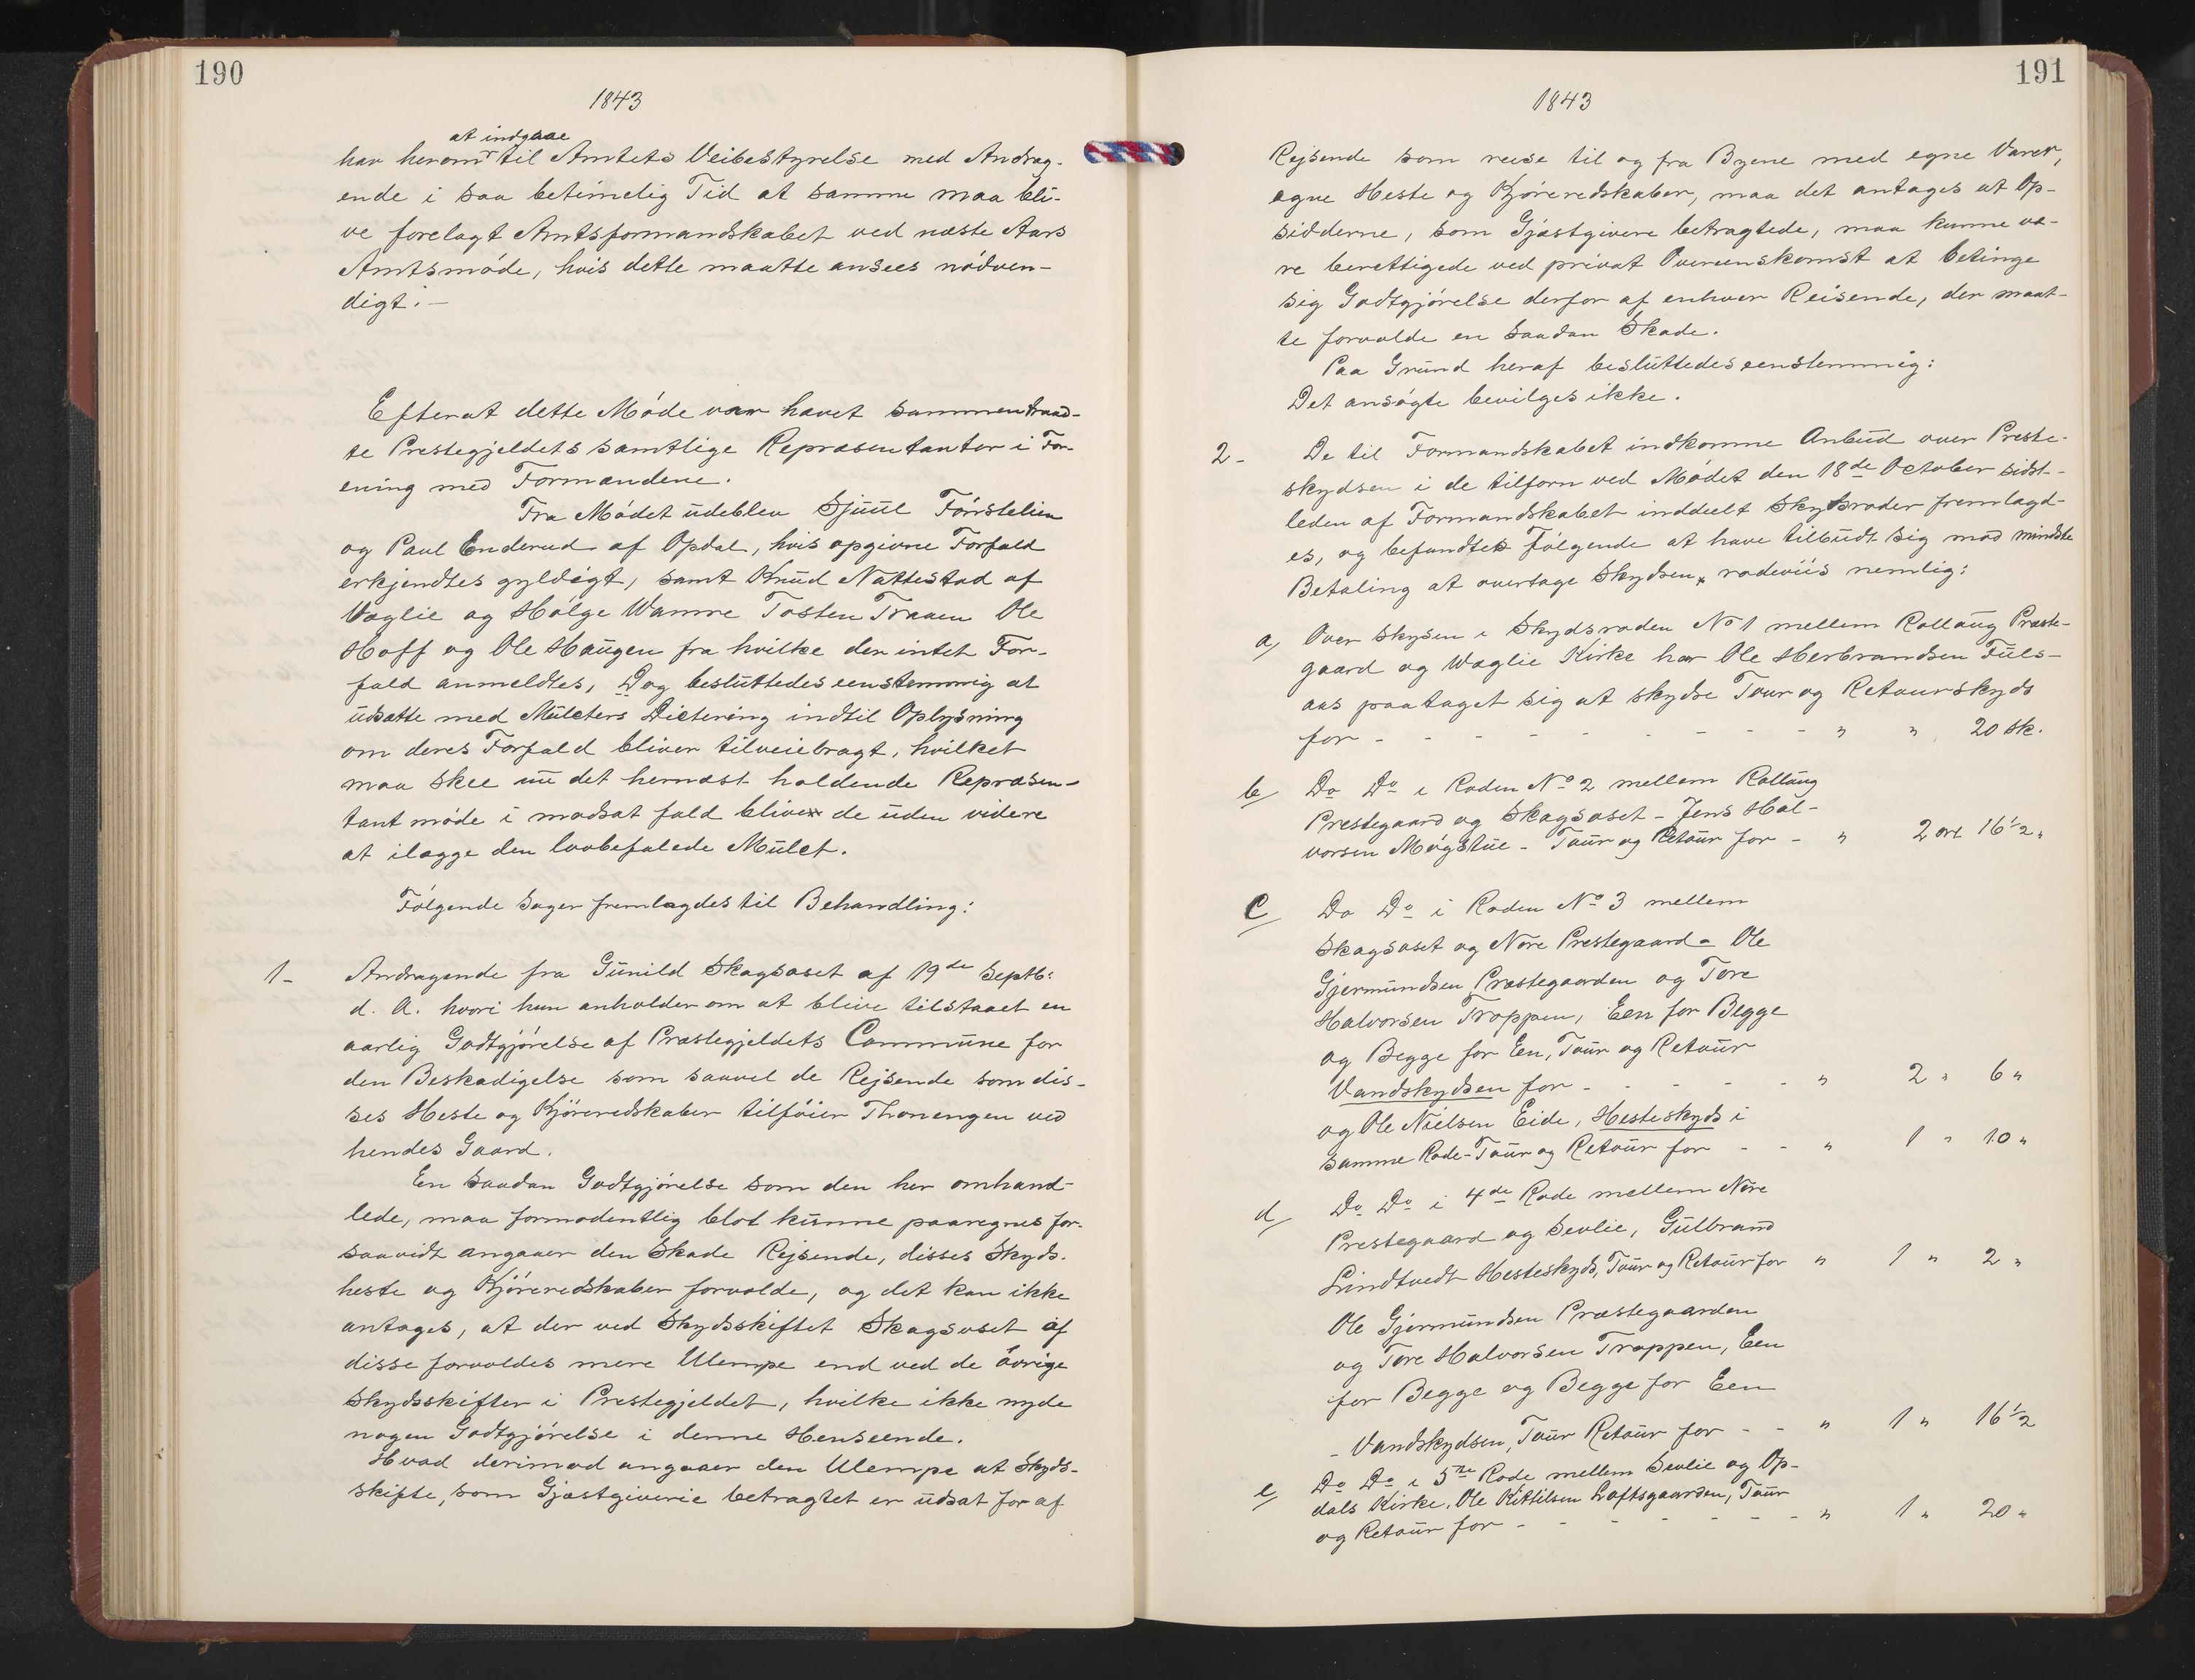 190
1843
at indgaae
har herom til Amtets Veibestyrelse med Andrag-
ende i saa betimelig Tid at samme maa bli-
ve forelagt Amtsformandskabet ved næste Aars
Amtsmøde, hvis dette maatte ansees nødven-
digt.-
Efterat dette Møde var hævet sammentraad-
te Prestegjeldets samtlige Repræsentanter i For-
ening med Formændene.
Fra Mødet udeblev Sjuul Førstelien
og Paul Enderud af Opdal, hvis opgivne Forfald
erkjendtes gyldigt, samt Knud Nattestad af
Væglie og Hølge Wamre Tosten Traaen Ole
Hoff og Ole Haugen fra hvilke der intet For-
fald anmeldtes, Dog besluttedes eenstemmig at
udsætte med Mulcters Dictering indtil Oplysning
om deres Forfald bliver tilveiebragt, hvilket
maa skee nu det hernæst holdende Repræsen-
tant møde i modsat fald blive de uden videre
at ilægge den lovbefalede Mulct.
Følgende Sager fremlagdes til Behandling:
1- Andragende fra Gunild Skagsoset af 19de Septb:
d. A. hvori hun anholder om at blive tilstaaet en
aarlig Godtgjørelse af Præstegjeldets Commune for
den Beskadigelse som saavel de Rejsende som dis-
ses Heste og Kjøreredskaber tilføier Thonengen ved
hendes Gaard.
En saadan Godtgjørelse som den her omhand-
lede, maa formodentlig blot kunne paaregnes for-
saavidt angaaer den Skade Rejsende, disses Skyds-
heste og Kjøreredskaber forvolde, og det kan ikke
antages, at der ved Skydsskiftet Skagsoset af
disse forvoldes mere Ulempe end ved de øvrige
Skydsskifter i Prestegjeldet, hvilke ikke nyde
nogen Godtgjørelse i denne Henseende.
Hvad derimod angaaer den Ulempe at Skyds-
skifte, som Gjæstgiverie betragtet er udsat for af
191
1843
Rejsende som reise til og fra Byene med egne Varer,
egne Heste og Kjøreredskaber, maa det antages at Op-
sidderne, som Gjæstgivere betragtede, maa kunne væ-
re berettigede ved privat Overeenskomst at betinge
sig Godtgjørelse derfor af enhver Reisende, der maat-
te forvolde en saadan Skade.
Paa Grund heraf besluttedes eenstemmig:
Det ansøgte bevilges ikke.
2- De til Formandskabet indkomne Anbud over Preste-
skydsen i de tilforn ved Mødet den 18de October sidst-
leden af Formandskabet inddeelt Skydsroder fremlagd-
es, og befandtes følgende at have tilbudt sig mod mindste
Betaling at overtage Skydsen, rodeviis nemlig:
a/ Over Skysen i Skydsroden No 1 mellem Rollaug Præste-
gaard og Væglie Kirke har Ole Herbrandsen Fuls-
aas paataget sig at skydse Tour og Retourskyds
for - - - - - - - - - " " 20 sk.
b/ Do Do i Roden No 2 mellem Rollaug
Prestegaard og Skagsoset - Jens Hal-
vorsen Møgstue - Tour og Retour for - " 2 ort 16 1/2 "
C/ Do Do i Roden No 3 mellem
Skagsoset og Nore Prestegaard - Ole
Gjermundsen Præstegaarden og Tore
Halvorsen Troppen, Een for Begge
og Begge for Een, Tour og Retour
Vandskydsen for - - - - - " 2 " 6 "
og Ole Nielsen Eide, Hesteskyds i
samme Rode - Tour og Retour for - - " 1 " 10 "
d/ Do Do i 4de Rode mellem Nore
Prestegaard og Sevlie, Gulbrand
Lindtvedt Hesteskyds, Tour og Retour for " 1 " 2 "
Ole Gjermundsen Præstegaarden
og Tore Halvorsen Troppen, Een
for Begge og Begge for Een
- Vandskydsen, Tour Retour for - - " 1 " 16 1/2
e/ Do Do i 5te Rode mellem Sevlie og Op-
dals Kirke, Ole Kittilsen Loftsgaarden, Tour
og Retour for - - - - - - - " 1 " 20 "